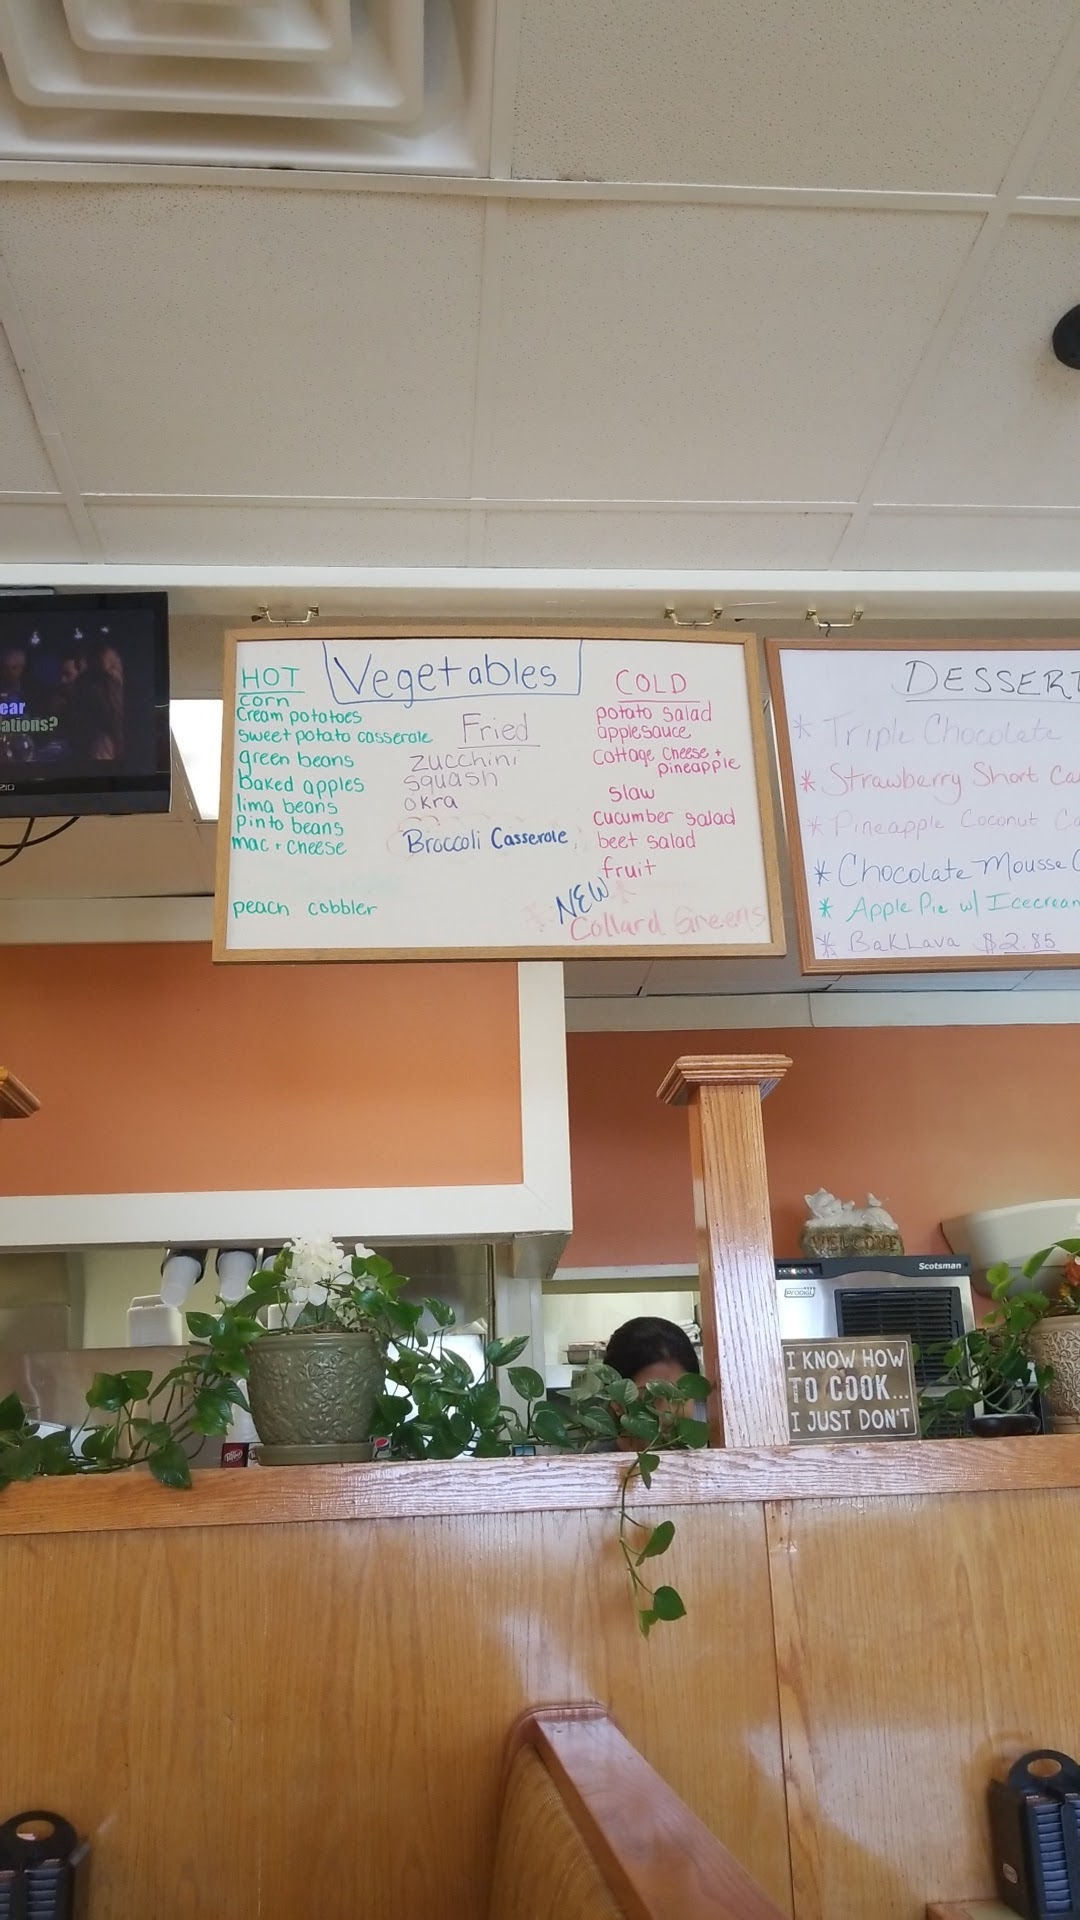 Vegetables
HOT
corn
Cream potatoes
sweet potato casserole
green beans
baked apples
lima beans
pinto beans
mac + cheese
peach cobbler
Fried
zucchini
squash
okra
Broccoli Casserole
COLD
potato salad
applesauce
Cottage Cheese +
pineapple
slaw
cucumber salad
beet salad
fruit
NEW
Collard Greens
DESSERT
* Triple Chocolate
* Strawberry Short Ca
* Pineapple Coconut Ca
* Chocolate Mousse C
* Apple Pie w/ Icecream
* BakLava $2.85
ear
ations?
WELCOME
Scotsman
PRODIGY
I KNOW HOW
TO COOK...
I JUST DON'T